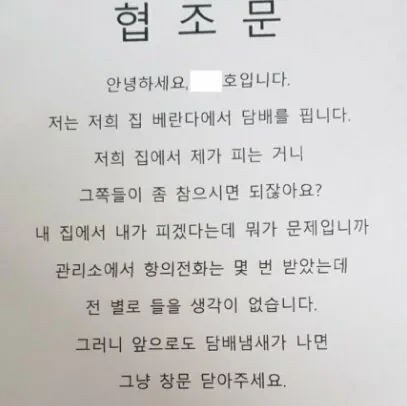 협 조 문
안녕하세요, 호입니다.
저는 저희 집 베란다에서 담배를 핍니다.
저희 집에서 제가 피는 거니
그쪽들이 좀 참으시면 되잖아요?
내 집에서 내가 피겠다는데 뭐가 문제입니까
관리소에서 항의전화는 몇 번 받았는데
전 별로 들을 생각이 없습니다.
그러니 앞으로도 담배냄새가 나면
그냥 창문 닫아주세요.